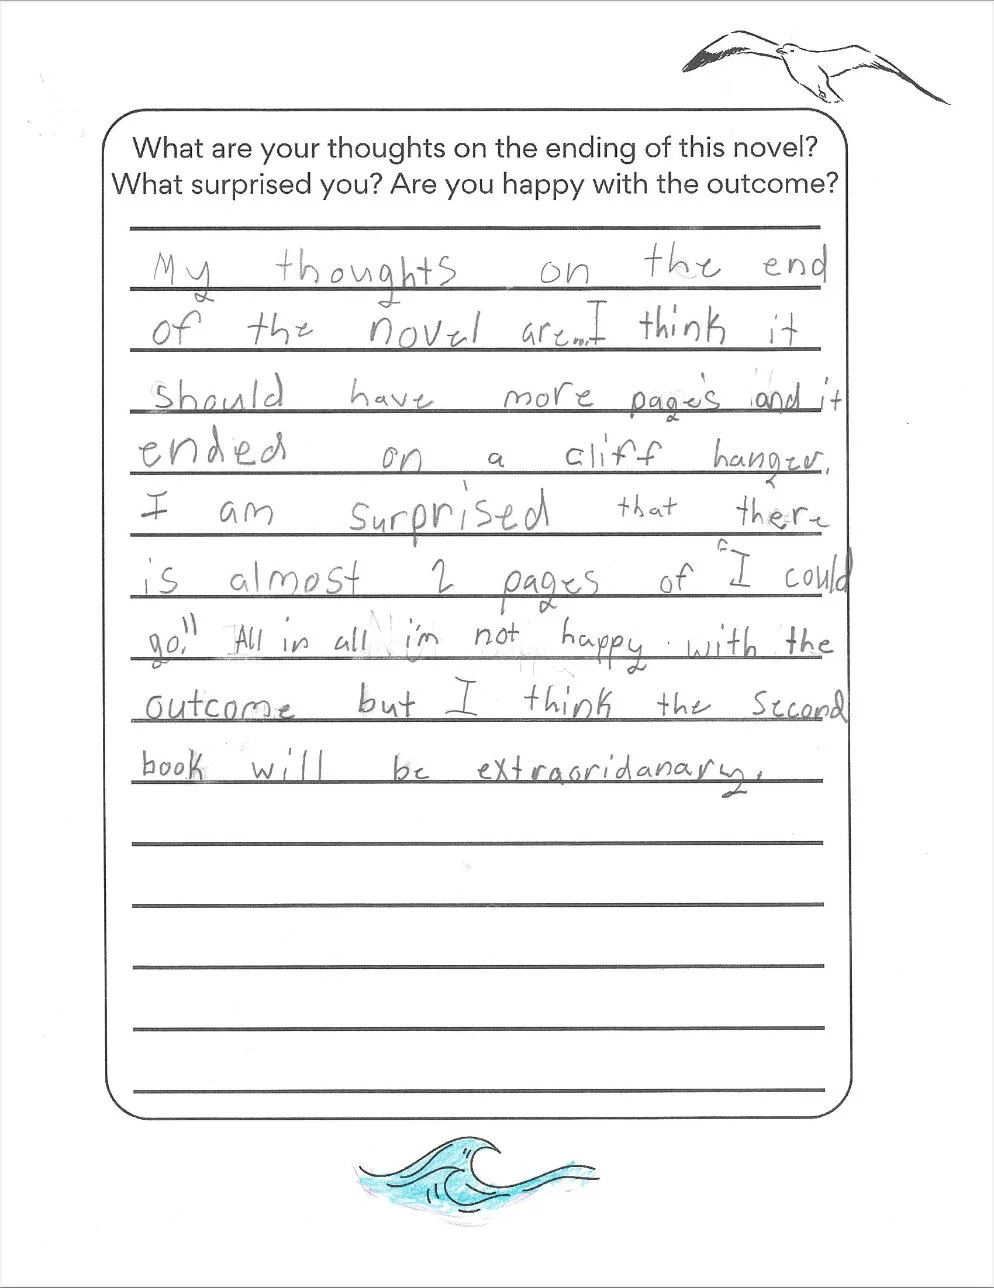 What are your thoughts on the ending of this novel?
What surprised you? Are you happy with the outcome?
My thoughts on the end
of the novel are...I think it
should have more page's and it
ended on a cliff hanger.
I am surprised that there
is almost 2 pages of "I could
go." All in all i'm not happy with the
outcome but I think the second
book will be extraoridanary.